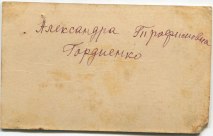 Александра Трофимовна
Гордиенко